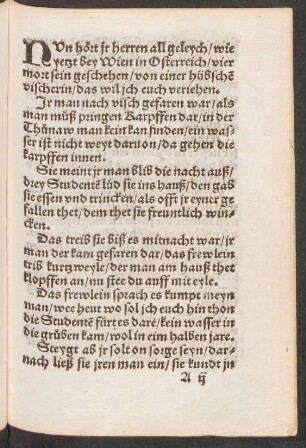 NUn hoͤrt jr herren all geleych / wie
yetzt bey Wien in Osterreich / vier
mort sein geschehen / von einer huͤbschē
vischerin / das wil ich euch veriehen.
Jr man nach visch gefaren war / als
man muͤß pringen Karpffen dar / in der
Thůnaw man kein kan finden / ein was⸗
ser ist nicht weyt daruon / da gehen die
karpffen innen.
Sie meint jr man blib die nacht auß /
drey Studentē lůd sie ins hauß / den gab
sie essen vnd trincken / als offt jr eyner ge
fallen thet / dem thet sie freuntlich win⸗
cken.
Das treib sie biß es mitnacht war / jr
man der kam gefaren dar / das frewlein
trib kurtzweyle / der man am hauß thet
klopffen an / nu stee du auff mit eyle.
Das frewlein sprach es kumpt meyn
man / wee heut wo sol jch euch hin thon
die Studentē fürt es dare / kein wasser in
die grůben kam / wol in eim halben jare.
Steygt ab jr solt on sorge seyn / dar⸗
nach ließ sie jren man ein / sie kundt jn
A ij